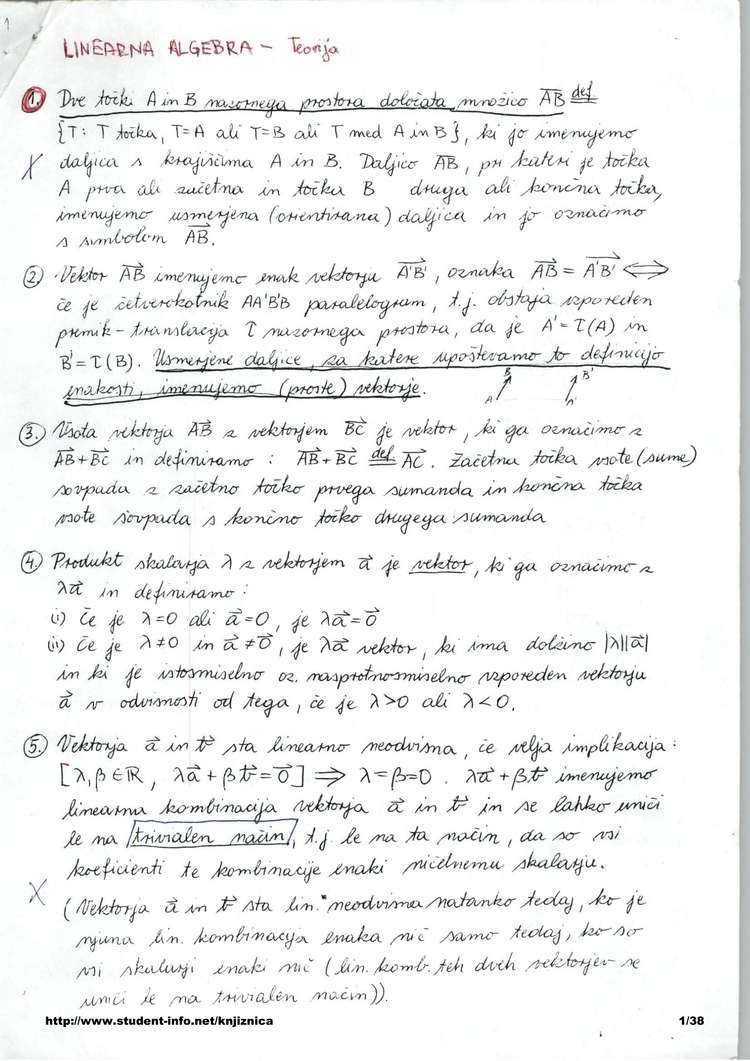 1
LINEARNA ALGEBRA - Teorija
1. Dve točki A in B nazornega prostora določata množico AB def
{T: T točka, T=A ali T=B ali T med A in B}, ki jo imenujemo
X daljica s krajiščima A in B. Daljico AB, pri kateri je točka
A prva ali začetna in točka B druga ali končna točka,
imenujemo usmerjena (orientirana) daljica in jo označimo
s simbolom A⃗B⃗.
2. Vektor A⃗B⃗ imenujemo enak vektorju A⃗'B⃗', oznaka A⃗B⃗ = A⃗'B⃗' ⟺
če je četverokotnik AA'B'B paralelogram, t.j. obstaja vzporeden
premik - translacija τ nazornega prostora, da je A' = τ(A) in
B' = τ(B). Usmerjene daljice, za katere upoštevamo to definicijo
enakosti, imenujemo (proste) vektorje.
A B A' B'
3. Vsota vektorja A⃗B⃗ z vektorjem B⃗C⃗ je vektor, ki ga označimo z
A⃗B⃗ + B⃗C⃗ in definiramo: A⃗B⃗ + B⃗C⃗ def= A⃗C⃗. Začetna točka vsote (sume)
sovpada z začetno točko prvega sumanda in končna točka
vsote sovpada s končno točko drugega sumanda
4. Produkt skalarja λ z vektorjem a⃗ je vektor, ki ga označimo z
λa⃗ in definiramo:
(i) če je λ=0 ali a⃗=0, je λa⃗=0⃗
(ii) če je λ≠0 in a⃗≠0⃗, je λa⃗ vektor, ki ima dolžino |λ||a⃗|
in ki je istosmiselno oz. nasprotnosmiselno vzporeden vektorju
a⃗ v odvisnosti od tega, če je λ>0 ali λ<0.
5. Vektorja a⃗ in b⃗ sta linearno neodvisna, če velja implikacija:
[λ,β∈ℝ, λa⃗+βb⃗=0⃗] ⟹ λ=β=0. λa⃗+βb⃗ imenujemo
linearna kombinacija vektorja a⃗ in b⃗ in se lahko uniči
le na trivialen način, t.j. le na ta način, da so vsi
koeficienti te kombinacije enaki ničelnemu skalarju.
X (Vektorja a⃗ in b⃗ sta lin. neodvisna natanko tedaj, ko je
njuna lin. kombinacija enaka nič samo tedaj, ko so
vsi skalarji enaki nič (lin. komb. teh dveh vektorjev se
uniči le na trivialen način)).
http://www.student-info.net/knjiznica 1/38